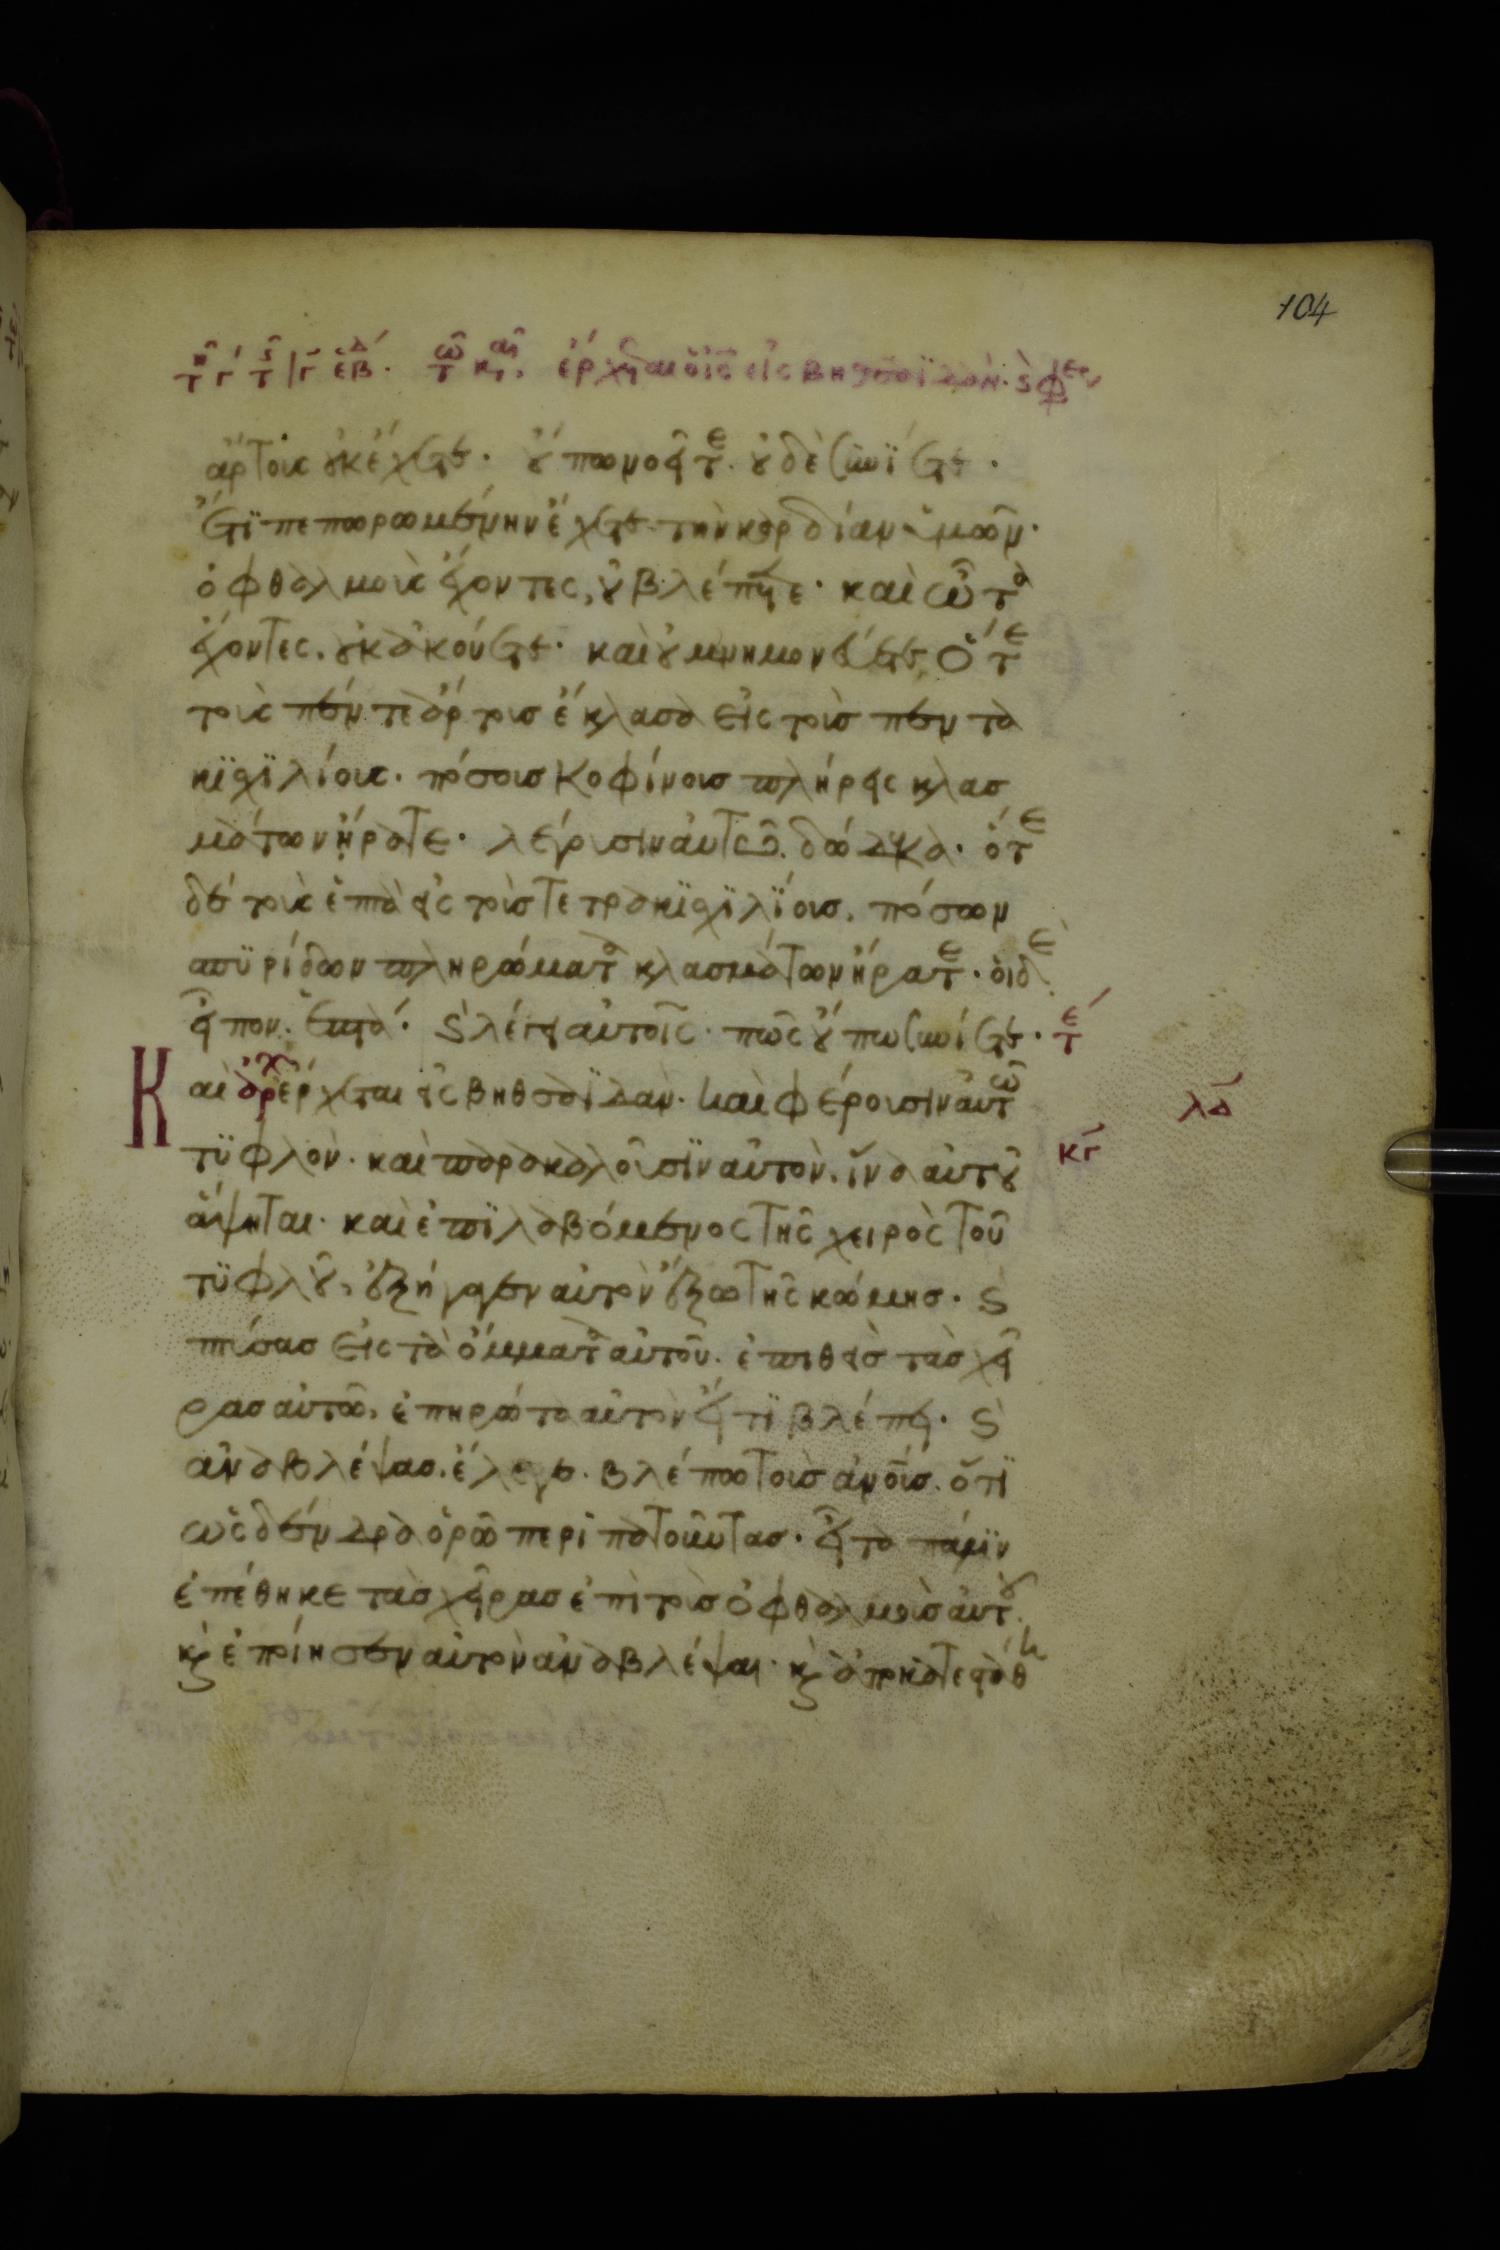 104
ἔρχεται ὁ ἰς εἰς βηθσαϊδάν. ϛ φερου
ἄρτους οὐκ ἔχετε. οὔπω νοεῖτε. οὐδὲ συνίετε.
ἔτι πεπωρωμένην ἔχετε τὴν καρδίαν ὑμῶν.
ὀφθαλμοὺς ἔχοντες, οὐ βλέπετε. καὶ ὦτα
ἔχοντες, οὐκ ἀκούετε. καὶ οὐ μνημονεύετε, ὅτε
τοὺς πέντε ἄρτους ἔκλασα εἰς τοὺς πεντα
κισχιλίους. πόσους κοφίνους πλήρεις κλασ
μάτων ἤρατε. λέγουσιν αὐτῶ. δώδεκα. ὅτε
δὲ τοὺς ἑπτὰ εἰς τοὺς τετρακισχιλίους, πόσων
σπυρίδων πληρώματα κλασμάτων ἤρατε. οἱ δὲ
εἶπον. ἑπτά. ϛ λέγει αὐτοῖς. πῶς οὔπω συνίετε. τε
Καὶ αρχ ἔρχεται εἰς βηθσαϊδάν. καὶ φέρουσιν αὐτῶ
λδ
τυφλὸν. καὶ παρακαλοῦσιν αὐτὸν, ἵνα αὐτοῦ
κγ
ἅψηται. καὶ ἐπιλαβόμενος τῆς χειρὸς τοῦ
τυφλοῦ, ἐξήγαγεν αὐτὸν ἔξω τῆς κώμης. ϛ
πτύσας εἰς τὰ ὄμματα αὐτοῦ. ἐπιθεὶς τὰς χεῖ
ρας αὐτῶ, ἐπηρώτα αὐτὸν εἴ τι βλέπει. ϛ
ἀναβλέψας. ἔλεγε. βλέπω τοὺς ἀνους. ὅτι
ὡς δένδρα ὁρῶ περιπατοῦντας. εἶτα πάλιν
ἐπέθηκε τὰς χεῖρας ἐπὶ τοὺς ὀφθαλμοὺς αὐτοῦ.
κ ἐποίησεν αὐτὸν ἀναβλέψαι. κ ἀποκατεστάθη